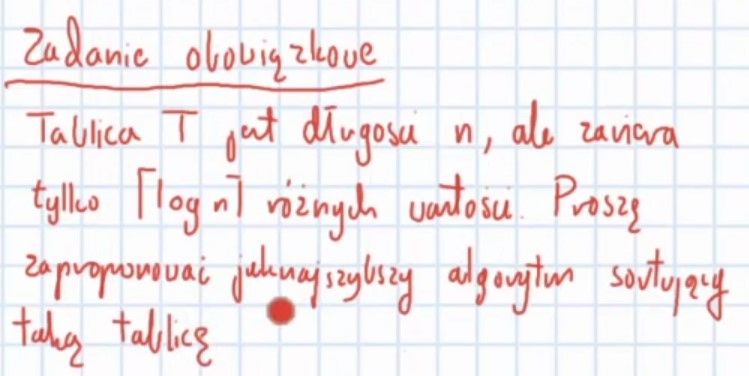 Zadanie obowiązkowe
Tablica T jest długości n, ale zawiera
tylko ⌈log n⌉ różnych wartości. Proszę
zaproponować jaknajszybszy algorytm sortujący
taką tablicę